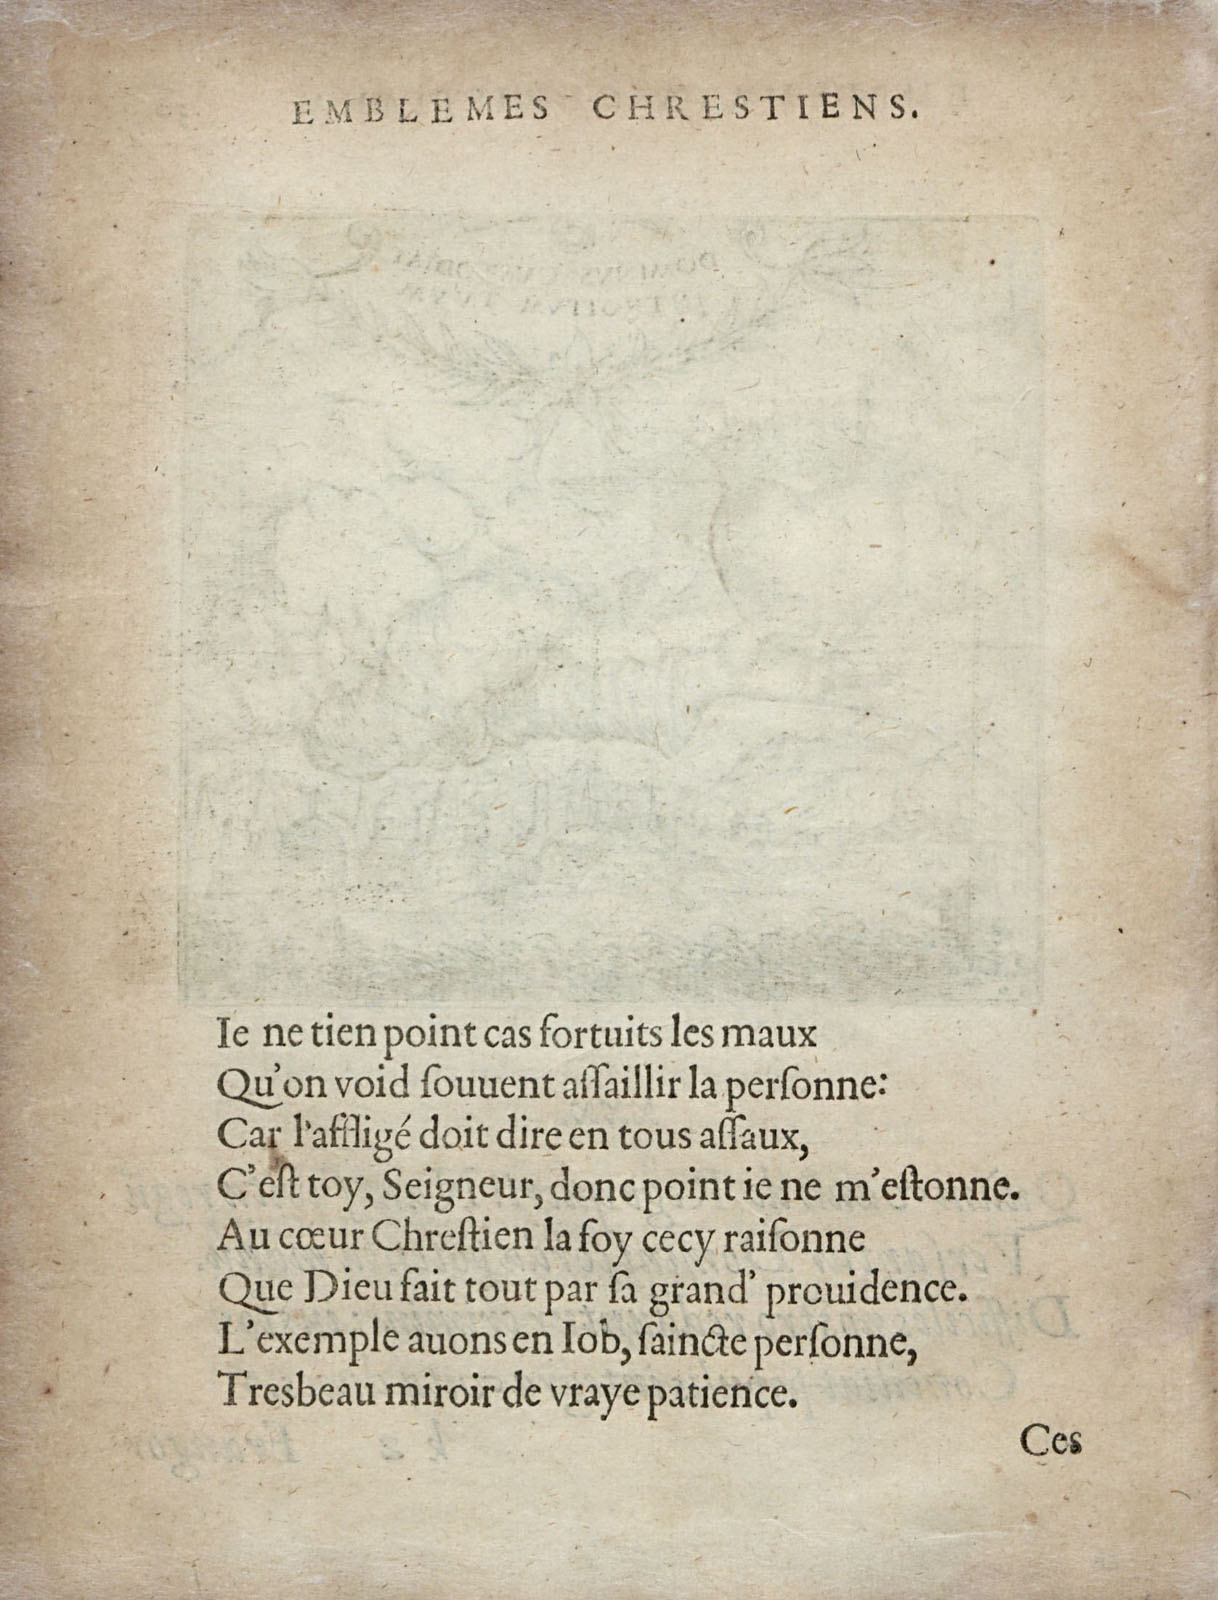 EMBLEMES CHRESTIENS.
Ie ne tien point cas fortuits les maux
Qu'on void ſouuent aſſaillir la perſonne:
Car l'affligé doit dire en tous aſſaux,
C'eſt toy, Seigneur, donc point ie ne m'eſtonne.
Au cœur Chreſtien la foy cecy raiſonne
Que Dieu fait tout par ſa grand' prouidence.
L'exemple auons en Iob, ſaincte perſonne,
Tresbeau miroir de vraye patience.
Ces